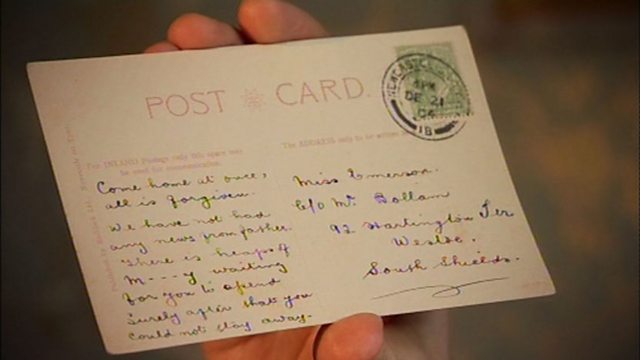 POST CARD.
NEWCASTLE
PM
DE 21
04
18
For INLAND Postage only this space may
be used for communication.
The ADDRESS only to be written
Come home at once,
all is forgiven.
We have not had
any news from father.
There is heaps of
M---y waiting
for you to spend
Surely after that you
could not stay away.
Miss Emerson.
C/o Mr Bollam
92 Hartington Ter
Westoe.
South Shields.